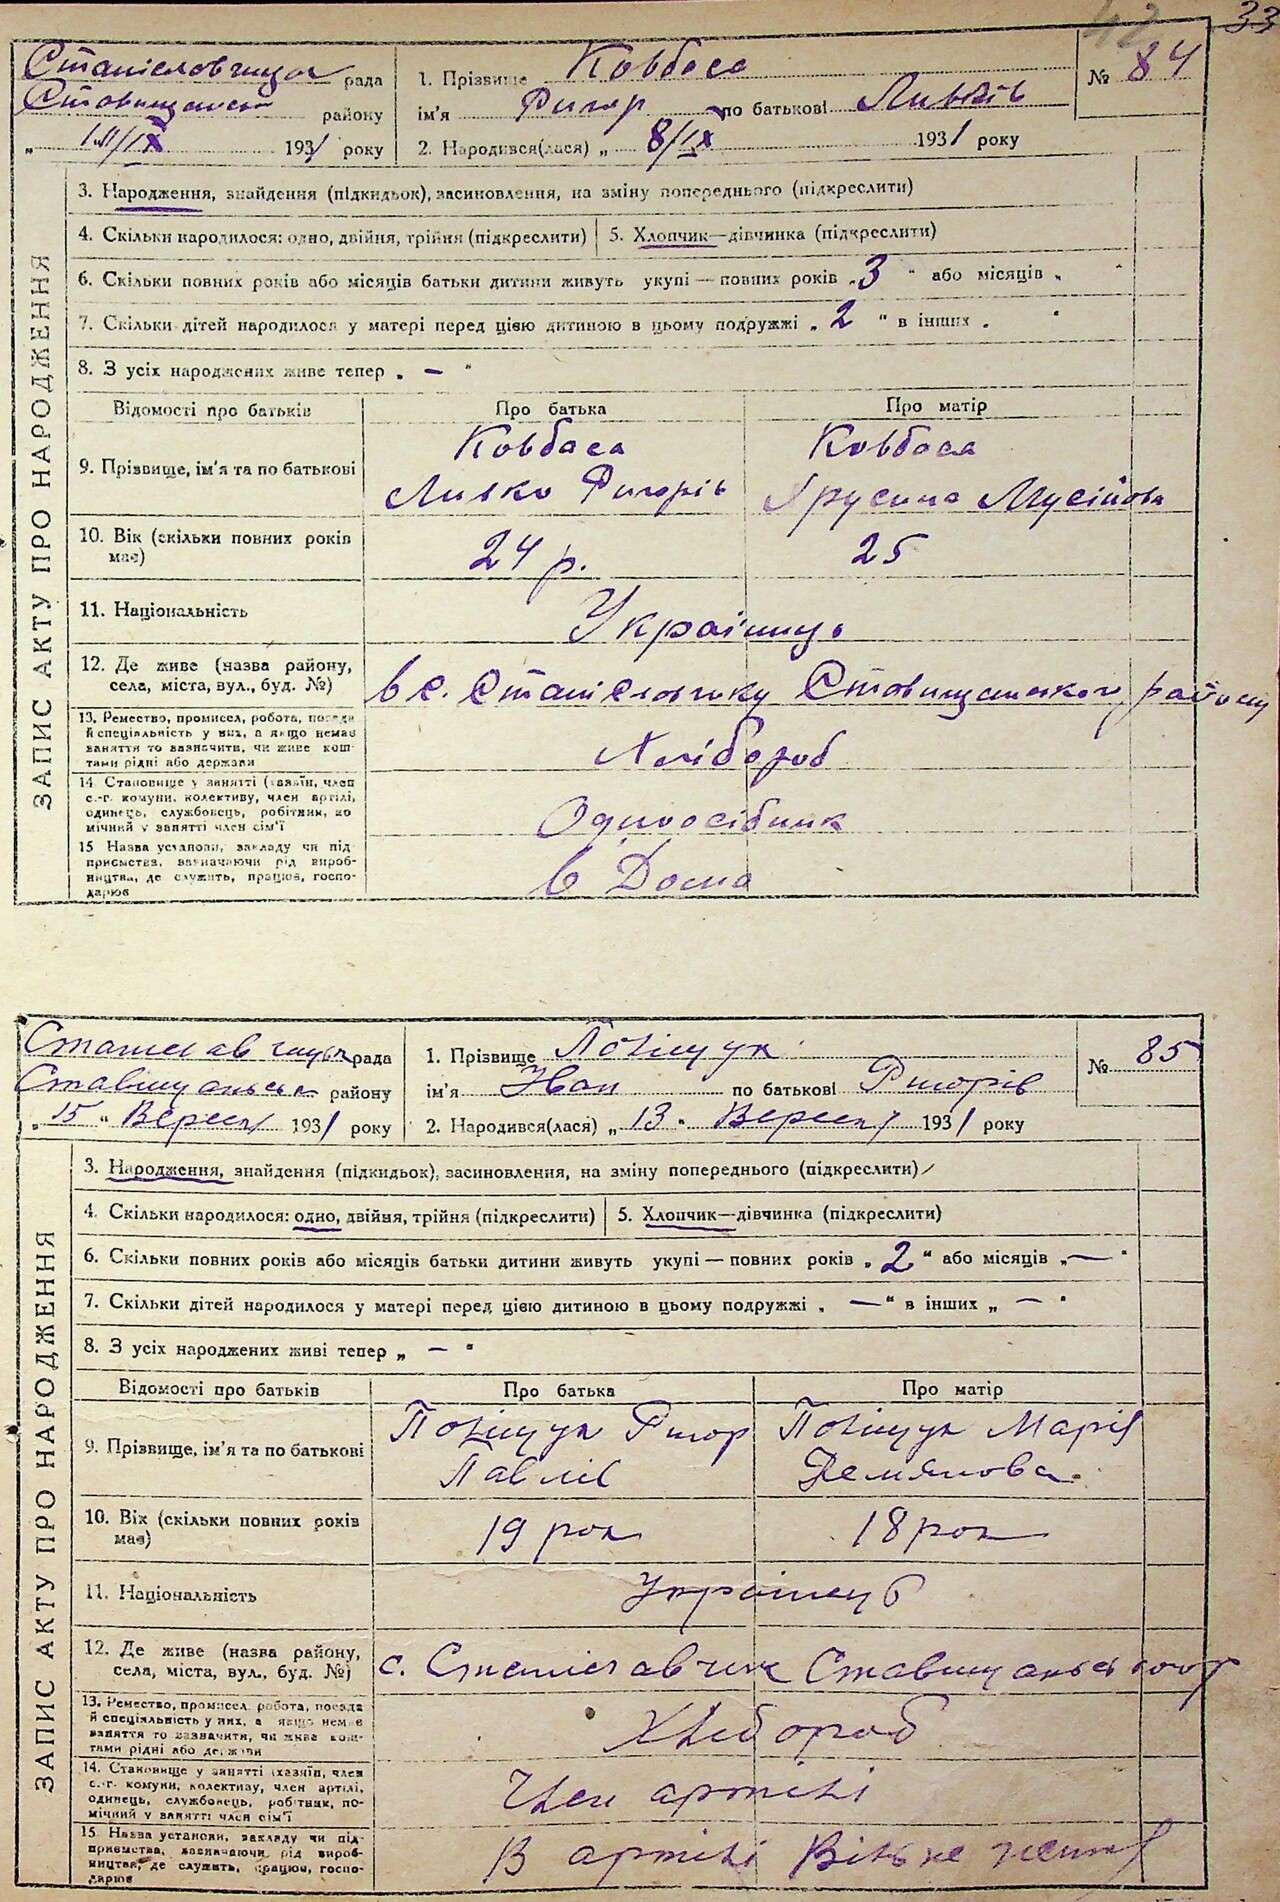 33
Станіславчицька рада
Ставищанськ району
„ 14/IX 1931 року
1. Прізвище Ковбаса
ім'я Ригор по батькові Ливків
2. Народився(лася) „ 8/IX 1931 року
№ 84
ЗАПИС АКТУ ПРО НАРОДЖЕННЯ
3. Народження, знайдення (підкидьок), засиновлення, на зміну попереднього (підкреслити)
4. Скільки народилося: одно, двійня, трійня (підкреслити)
5. Хлопчик—дівчинка (підкреслити)
6. Скільки повних років або місяців батьки дитини живуть укупі — повних років „ 3 “ або місяців „ “
7. Скільки дітей народилося у матері перед цією дитиною в цьому подружжі „ 2 “ в інших „ “
8. З усіх народжених живе тепер „ — “
Відомості про батьків
Про батька
Про матір
9. Прізвище, ім'я та по батькові
Ковбаса
Ливко Ригорів
Ковбаса
Мусійова
10. Вік (скільки повних років
має)
24 р.
25
11. Національність
Українць
12. Де живе (назва району,
села, міста, вул., буд. №)
в с. Станіславчику Ставищанського району
13. Ремество, промисел, робота, посада
й спеціяльність у них, а якщо немає
заняття то зазначити, чи живе кош-
тами рідні або держави
Хлібороб
14 Становище у занятті (хазяїн, член
с.-г. комуни, колективу, член артілі,
одинець, службовець, робітник, по
мічний у занятті член сім'ї
Одноосібник
15 Назва установи, закладу чи під
приємства, зазначаючи рід вироб-
ництва, де служить, працює, госпо-
дарює
в Дома
Станіславчицька рада
Ставищанська району
„ 15 “ Вересня 1931 року
1. Прізвище Поліщук
ім'я Іван по батькові Ригорів
2. Народився(лася) „ 13 “ Вересня 1931 року
№ 85
ЗАПИС АКТУ ПРО НАРОДЖЕННЯ
3. Народження, знайдення (підкидьок), засиновлення, на зміну попереднього (підкреслити)
4. Скільки народилося: одно, двійня, трійня (підкреслити)
5. Хлопчик—дівчинка (підкреслити)
6. Скільки повних років або місяців батьки дитини живуть укупі — повних років „ 2 “ або місяців „ — “
7. Скільки дітей народилося у матері перед цією дитиною в цьому подружжі „ — “ в інших „ — “
8. З усіх народжених живі тепер „ — “
Відомості про батьків
Про батька
Про матір
9. Прізвище, ім'я та по батькові
Поліщук Ригор
Павлів
Поліщук Марія
Демянова
10. Вік (скільки повних років
має)
19 рок
18 рок
11. Національність
Українці
12. Де живе (назва району,
села, міста, вул., буд. №)
с. Станіславчик Ставищанського р
13. Ремество, промисел, робота, посада
й спеціяльність у них, а якщо немає
заняття то зазначити, чи живе кош-
тами рідні або держави
Хлібороб
14. Становище у занятті (хазяїн, член
с.-г. комуни, колективу, член артілі,
одинець, службовець, робітник, по-
мічний у занятті член сім'ї
Член артілі
15. Назва установи, закладу чи під-
приємства, зазначаючи рід вироб-
ництва, де служить, працює, госпо-
дарює
В артілі Вільне